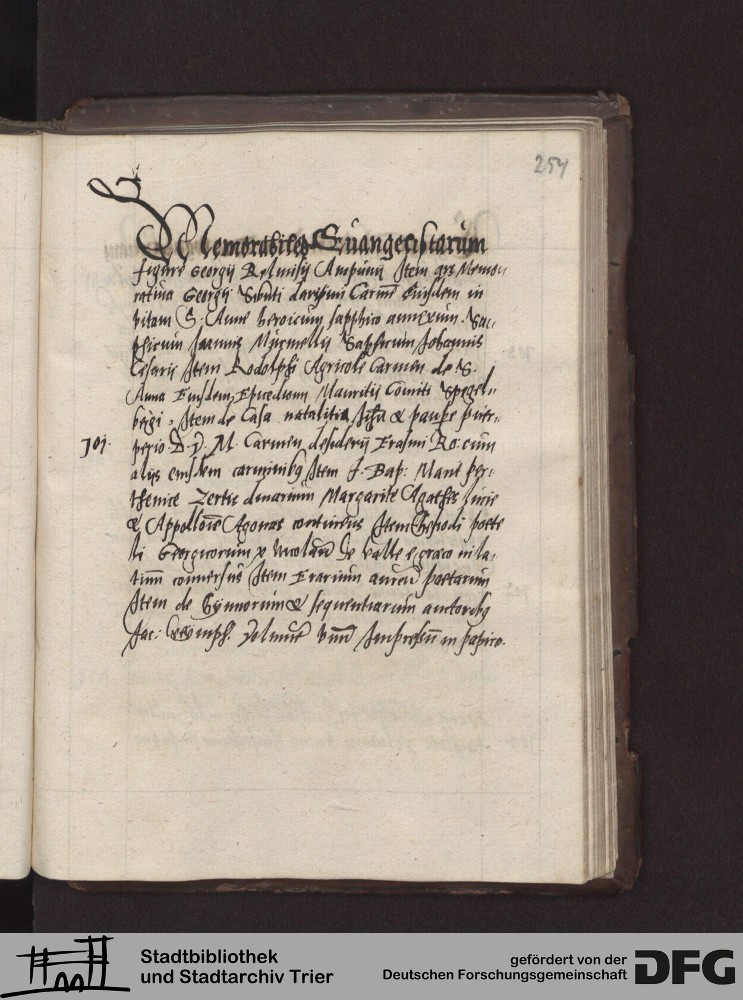 254
Memorabiles Euangelistarum
figure Georgij Relmisij Anespunij Item ars Memo-
ratiua Georgij Sibuti daripini Carmen Eiusdem in
vitam S. Anne heroicum sapphico annexum. Sap-
phicum Joannis Murmelij Sapphicum Johannis
Cesarij Item Rodolphi Agricole Carmen de S.
Anna Eiusdem Epicedion Mauritij Comiti Spegel-
bergi. Item de Casa natalitia Jhesu & paupere puer-
701.
perio D. V. M. Carmen desiderij Erasmi Ro: cum
alijs eiusdem carminibus Item f. Bap: Mant par-
thenice Tertia diuarum Margarite Agathes lucie
& Appollonie Agonas continens Item Hesiodi poete
li Georgicorum per Nicolaum de Valle e greco in la-
tinum conuersus Item Erarium aureum poetarum
Item de Hymnorum & sequentiarum auctoribus
Jac: Wimph. Volumen vnum Impressum in papiro.
Stadtbibliothek
und Stadtarchiv Trier
gefördert von der
Deutschen Forschungsgemeinschaft
DFG